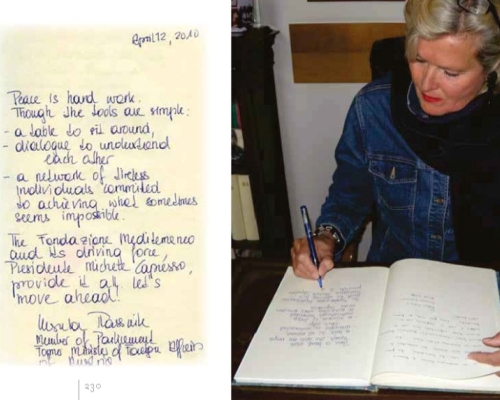 April 12, 2010
Peace is hard work.
Though the tools are simple:
- a table to sit around,
- dialogue to understand
each other
- a network of tireless
individuals committed
to achieving what sometimes
seems impossible.
The Fondazione Mediterraneo
and its driving force,
Presidente Michele Capasso,
provide it all. Let's
move ahead!
Ursula Plassnik
Member of Parliament
Former Minister of Foreign Affairs
of Austria
230